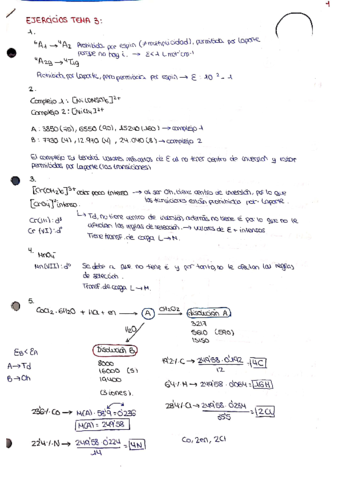 1
EJERCICIOS TEMA 3:
1.
⁴A₁ → ⁴A₂ Prohibida por espín (≠ multiplicidad), permitida por Laporte
porque no hay i. → ε < 1 L mol⁻¹ cm⁻¹
⁴A₂g → ⁴T₁g
Prohibida por Laporte, pero permitida por espín → ε: 10⁻³ - 1
2.
Complejo 1:
Complejo 2:
A: 3850 (70), 6550 (90), 15240 (160) → complejo 1
B: 7730 (4), 12940 (4), 24040 (8) → complejo 2
El complejo 1 tendrá valores de ε al no tener centro de inversión y estar
permitidas por Laporte (las transiciones)
3.
color poco intenso → al ser Oh, tiene centro de inversión, por lo que
las transiciones están prohibidas por Laporte.
intenso.
Cr(III): d³
↳ Td, no tiene centro de inversión, además no tiene é por lo que no le
Cr(VI): d⁰
afectan las reglas de selección → valores de ε + intensos
Tiene transf. de carga L→M.
4. MnO₄⁻
Mn(VII): d⁰
Se debe a que no tiene é y por tanto, no le afectan las reglas
de selección.
Transf. de carga L→M.
5.
CoCl₂·6H₂O + HCl + en → A → CH₃Cl₂ → disolución A
H₂O
3217
5610 (590)
15150
Disolución B
8000
16000 (S)
19400
(3 iones).
A → Td
B → Oh
19'2% C → 249'58·0'192 / 12 = 4C
6'4% H → 249'58·0'064 = 16H
23'6% Co → M(A)·58'9 = 0'236
M(A) = 249'58
28'4% Cl → 249'58·0'284 / 35'5 = 2Cl
22'4% N → 249'58·0'224 / 14 = 4N
Co, 2en, 2Cl